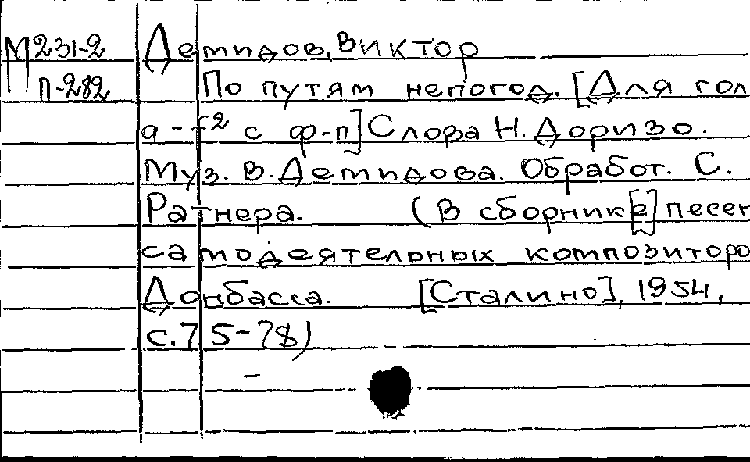 М231-2 Демидов, Виктор
П-282 По путям непогод. [Для гол
a-f² с ф-п] Слова Н. Доризо.
Муз. В. Демидова. Обработ. С.
Ратнера. (В сборник[е] песен
самодеятельных композиторо
Донбасса. [Сталино], 1954,
с. 75-78)